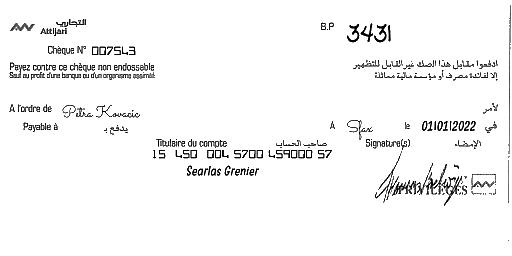 التجاري
Attijari
B.P 3431
Chèque N° 007543
Payez contre ce chèque non endossable
Sauf au profit d'une banque ou d'un organisme assimilé
ادفعوا مقابل هذا الصك غير القابل للتظهير
إلا لفائدة مصرف أو مؤسسة مالية مماثلة
A l'ordre de Petra Kovacic لأمر
Payable à يدفع بـ
A Sfax le 01/01/2022 في
Titulaire du compte صاحب الحساب
Signature(s) الإمضاء
15 450 004 5700 459000 57
Searlas Grenier
PRIVILEGES